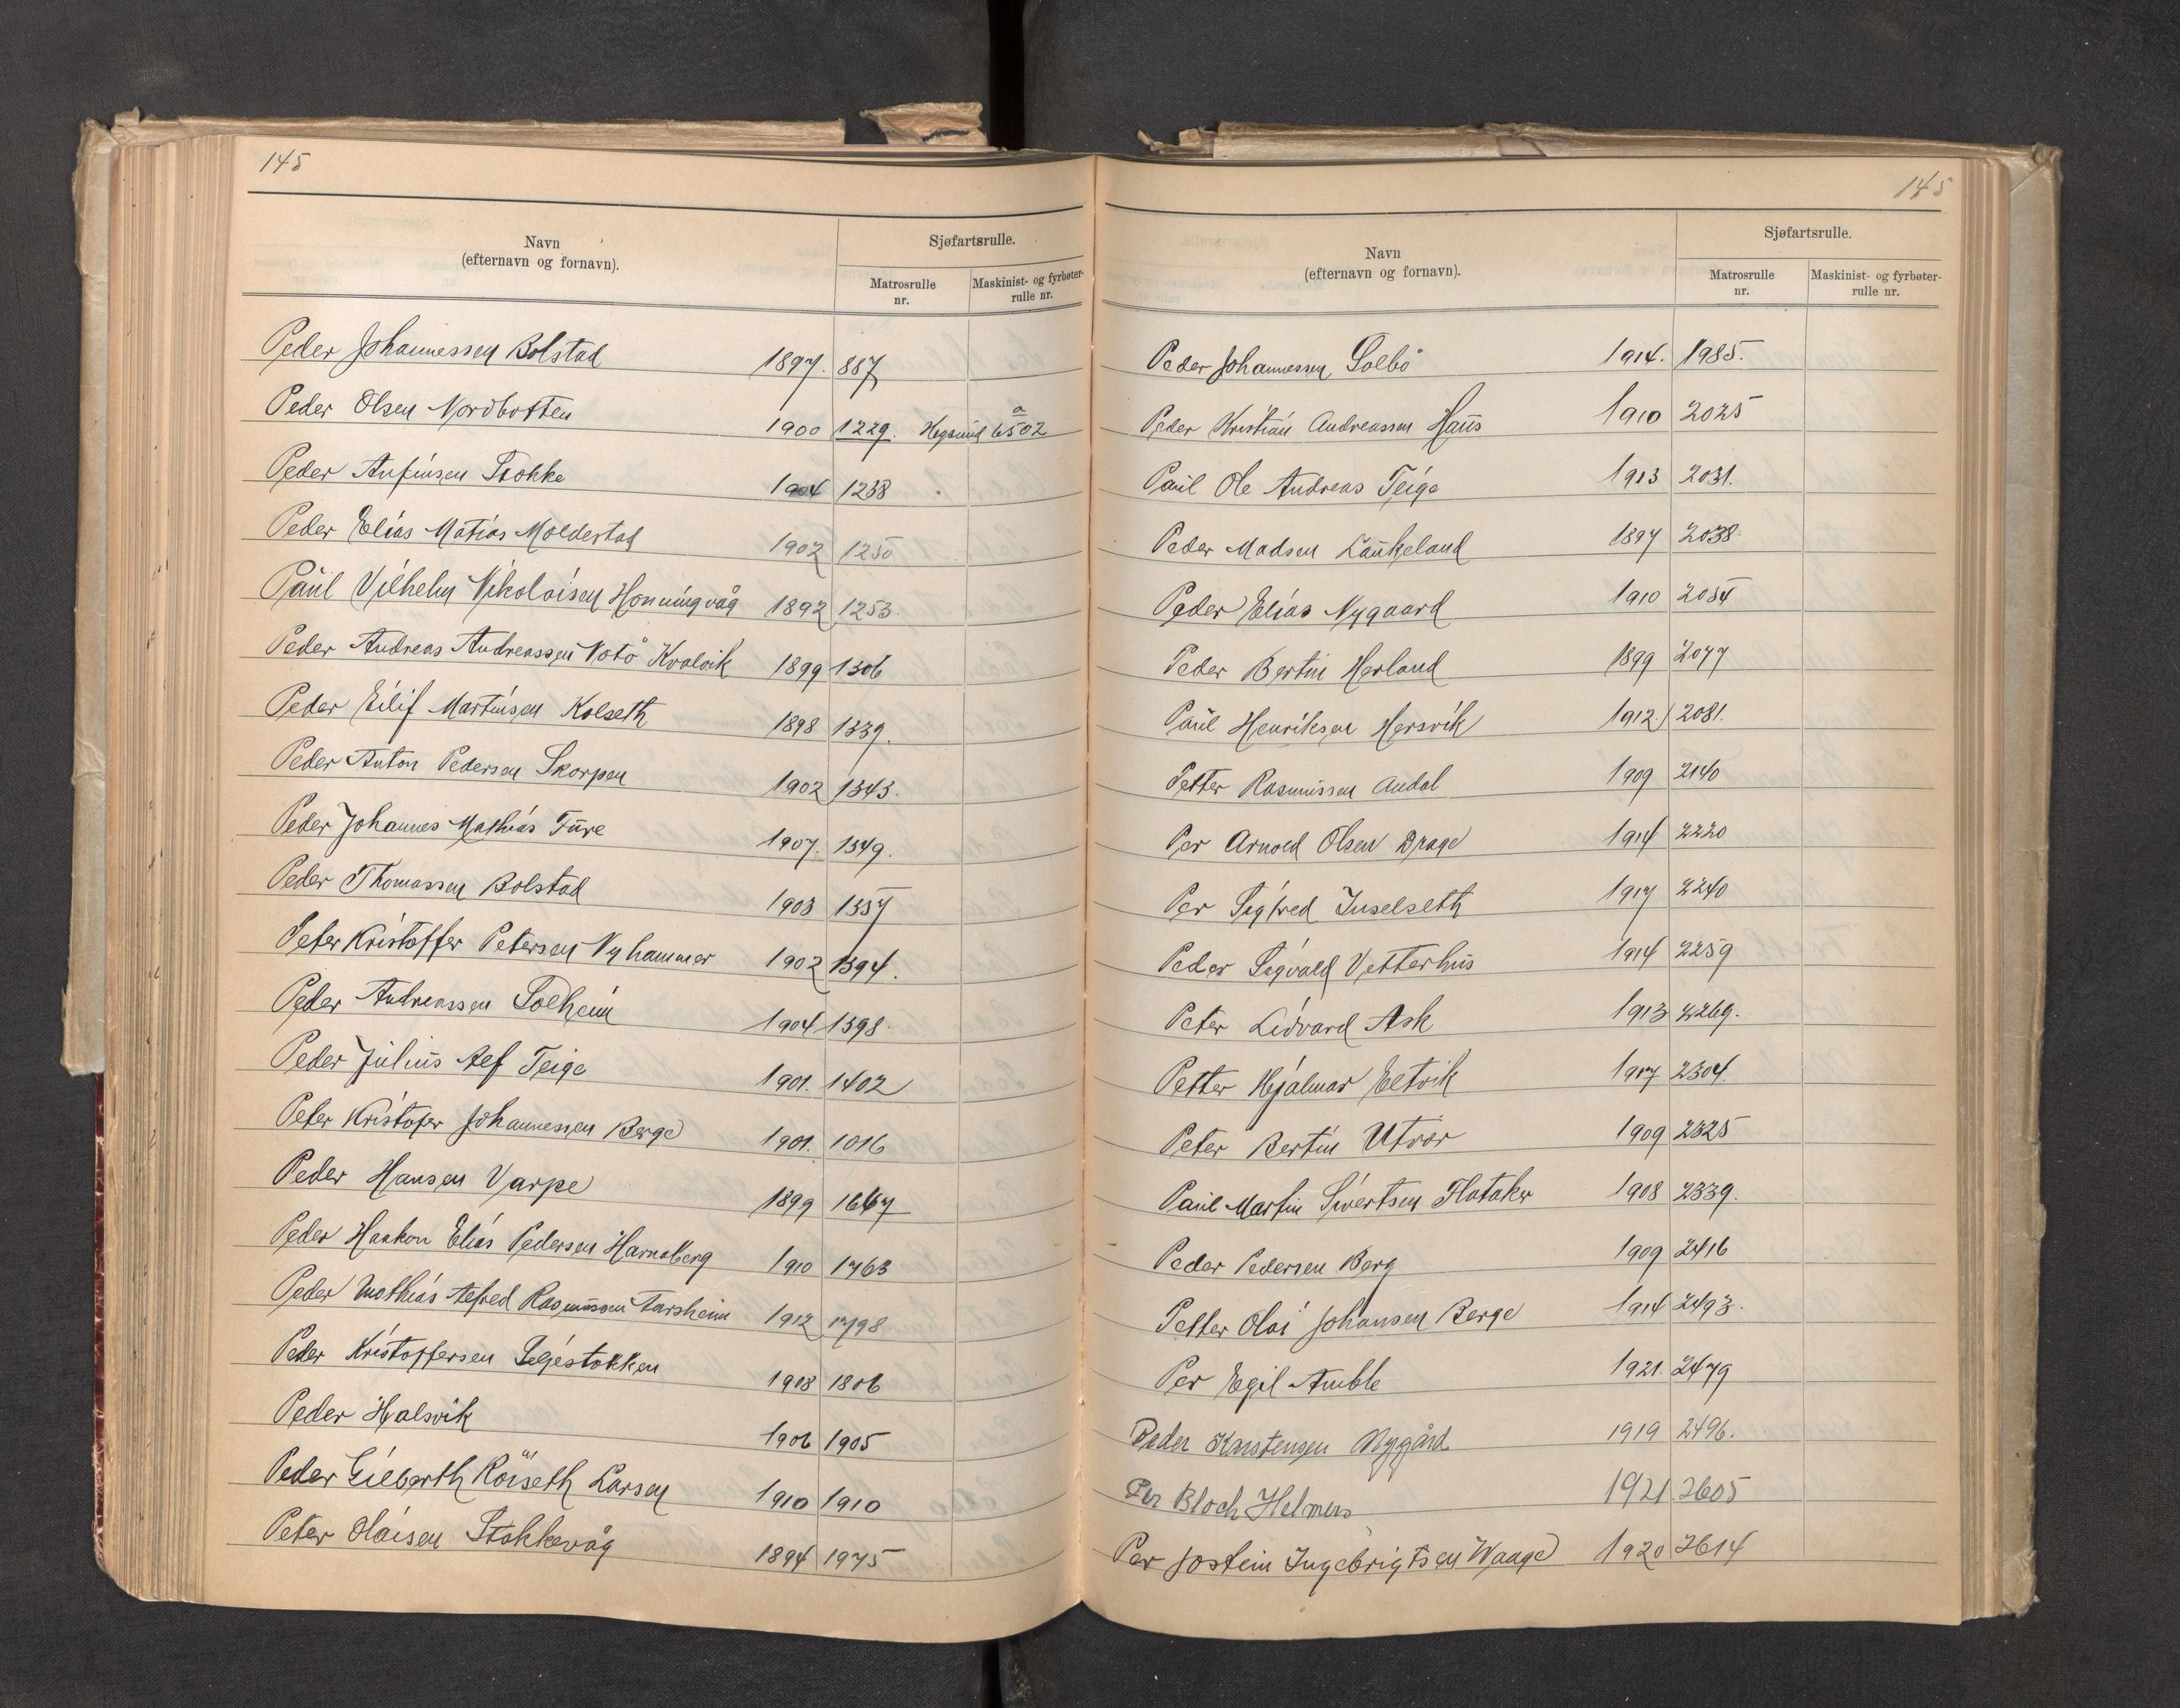 145
Navn
(efternavn og fornavn).
Sjøfartsrulle.
Matrosrulle
nr.
Maskinist- og fyrbøter-
rulle nr.
Peder Johannessen Bolstad 1897. 887
Peder Olsen Nordbotten 1900 1229. Hgsund a 6502
Peder Anfinsen Stokke 1904 1238
Peder Elias Matias Moldestad 1902 1250
Paul Vilhelm Nikolaisen Honningvåg 1892 1253.
Peder Andreas Andreassen Kvalvik 1899 1306
Peder Eilif Martinsen Kolseth 1898 1339.
Peder Anton Pedersen Skorpen 1902 1343.
Peder Johannes Mathias Fure 1907. 1349.
Peder Thomassen Bolstad 1903 1357
Peter Kristoffer Petersen Nyhammer 1902 1394.
Peder Andreassen Solheim 1904 1398.
Peder Julius Alf Teige 1901. 1402
Peter Kristofer Johannessen Berge 1901. 1016
Peder Hansen Varpe 1899 1667
Peder Haakon Elias Pedersen Hamaberg 1910 1763
Peder Mathias Alfred Rasmussen Tarsheim 1912 1798.
Peder Kristoffersen Seljestokken 1908 1806
Peder Halsvik 1906 1905
Peder Gilberth Röiseth Larsen 1910 1910
Peter Olaisen Stokkevåg 1894 1975
145
Navn
(efternavn og fornavn).
Sjøfartsrulle.
Matrosrulle
nr.
Maskinist- og fyrbøter-
rulle nr.
Peder Johannessen Solbö 1914. 1985.
Peder Kristian Andreassen Haus 1910 2025
Paul Ole Andreas Teige 1913 2031.
Peder Madsen Laukeland 1897 2038.
Peder Elias Nygaard 1910 2054
Peder Bertin Herland 1899 2077
Paul Henriksen Hersvik 1912. 2081.
Petter Rasmussen Andal 1909 2140
Per Arnold Olsen Drage 1914 2220
Per Sigfred Indselseth 1917 2240
Peder Sigvald Vetterhus 1914 2259
Peter Lidvard Ask 1913 2269.
Petter Hjalmar Eltvik 1917 2304.
Peter Bertin Utvær 1909 2325
Paul Martin Sivertsen Flataker 1908 2339.
Peder Pedersen Berg 1909 2416
Petter Olai Johansen Berge 1914 2493.
Per Egil Amble 1921. 2479
Peder Karstensen Nygård 1919 2496.
Per Bloch Helmers 1921 2605
Per Jostein Ingebrigtsen Waage 1920 2614